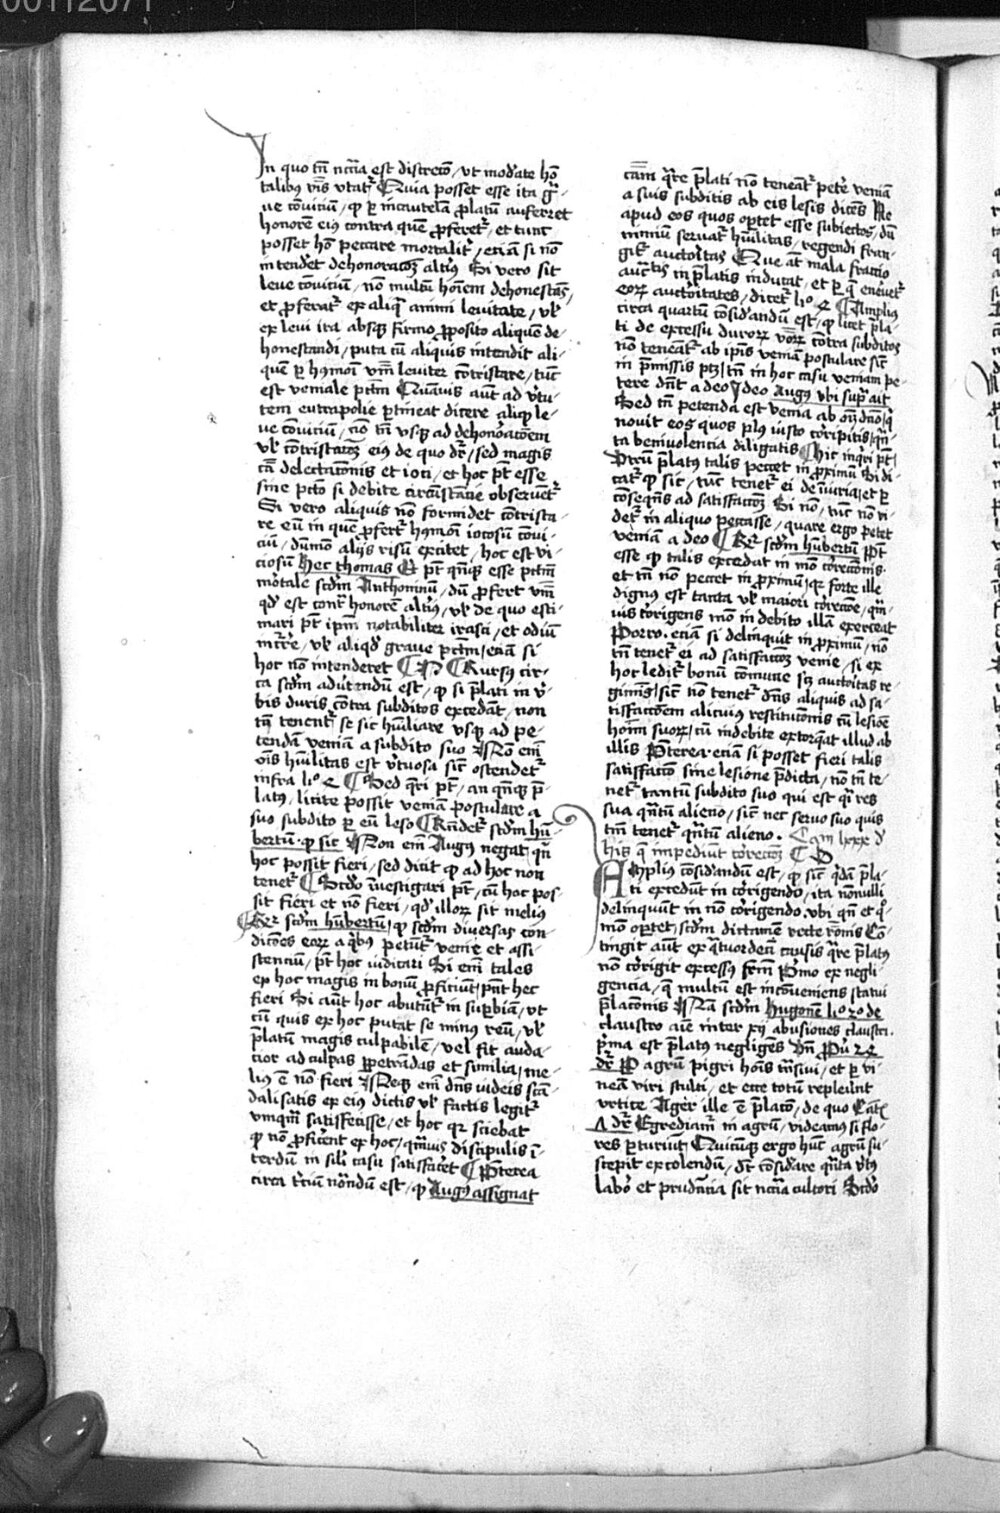 00112071
In quo tn̄ nc̄cia est discrecō / vt mod'ate hō
talibus v̄bis vtat᷑ Quia posset esse ita gͣ-
ue cōuiciū / qp ꝑ incautelā ꝓlatū auferret
honorē eius contra quē ꝓferet᷑ / et tunc
posset hō peccare mortalit᷑ / eciā si nō
intenderet dehonoracōȝ alti9 Si vero sit
leue cōuiciū / nō multū hoīem dehonestās /
et ꝓferat᷑ ex aliqͣ animi leuitate / vl'
ex leui ira absqȝ firmo ꝓposito aliquē de-
honestandi / puta cū aliquis intendit ali-
quē ꝑ hmōi v̄bm leuiter cōtristare / tūc
est veniale pctm̄ Quāuis aūt ad v̄tu-
tem eutrapolie ꝑtineat dicere aliqd le-
ue cōuiciū / nō tn̄ vsqȝ ad dehonoracōem
vl' cōtristacōȝ eius de quo dr̄ / sed magis
cā delectacōnis et ioci / et hoc pt̄ esse
sine pctō si debite circūstācie obseruēt᷑
Si vero aliquis nō formidet cōtrista-
re eū in quē ꝓfert᷑ hmōi iocosū cōui-
ciū / dūmō alijs risū excitet / hoc est vi-
ciosū Hec thomas Et pt̄ qn̄qȝ esse pctm̄
mōtale scd'm Anthoninū / dū ꝓfert v̄bm
qd' est contͣ honorē alti9 / vl' de quo esti-
mari pt̄ ipm̄ notabiliter irasci / et odiū
incͬre / vl' aliqd' graue pctm̄ / eciā si
hoc nō intenderet ¶ P ¶ Rursus cir-
ca scd'm aduertendū est / qp si p̄lati in v̄-
bis duris cōtra subditos excedāt / non
tn̄ tenent᷑ se sic hūiliare vsqȝ ad pe-
tendā veniā a subdito suo Nō em̄
oīs hūilitas est v̄tuosa sic̄ ostendet᷑
infra li° 2 ¶ Sed q̄ri pt̄ / an qn̄qȝ p̄-
latus / licite possit veniā postulare a
suo subdito ꝑ eū leso ¶ Rn̄det᷑ scd'm hū-
bertū · qp sic Non em̄ Augus negat qn̄
hoc possit fieri / sed dicit qp ad hoc non
tenet᷑ ¶ Scd'o inuestigari pt̄ / cū hoc pos-
sit fieri et nō fieri / qd' illoȝ sit melius
¶ R᷑ scd'm hūbertū / qp scd'm diuersas con-
diciōes eoȝ a qͥbus petūt᷑ venie et assi-
stenciū / pt̄ hoc iudicari Si em̄ tales
ex hoc magis in bonū ꝓficiūt / pn̄t hec
fieri Si aūt hoc abutūt᷑ in suꝑbiā / vt
cū quis ex hoc putat se minus reū / vl'
p̄latū magis culpabilē / vel fit auda-
cior ad culpas ꝑpetrādas et similia / me-
lius ē nō fieri Neqȝ em̄ dn̄s iudeis scā-
dalisatis ex eius dictis vl' factis legit᷑
vmqm̄ satisfecisse / et hoc qr sciebat
qp nō ꝓficerent ex hoc / qͣmuis discipulis ī-
terdū in sil'i casu satisfaceret ¶ Preterea
circa t'ciū notandū est / qp Augus assignat
cām qͣre p̄lati nō teneāt᷑ petere veniā
a suis subditis ab eis lesis dicēs Ne
apud eos quos oꝑtet esse subiectos / dū
nimiū seruat᷑ hūilitas / regendi fran-
git᷑ auctoritas Que at̄ mala fractio
auct'tis in p̄latis inducat / et ꝑ q̄ eneruet᷑
eoȝ auctoritates / dicet᷑ li° 2 ¶ Amplius
circa quartū cōsid'andū est / qp licet p̄la-
ti de excessu duroȝ v̄boȝ cōtra subditos
nō teneāt᷑ ab ipis veniā postulare sic̄
in p̄missis ptȝ / tn̄ in hoc casu veniam pe-
tere dn̄t a deo Ideo Augus vbi supͣ ait
Sed tn̄ petenda est venia ab oīm dn̄o / qͥ
nouit eos quos plus iusto corripitis / qͣn-
ta beniuolencia diligatis ¶ Hic inqͥri pt̄ /
Vtrū p̄latus talis peccet in ꝓximū Si di-
cat᷑ qp sic / tūc tenet᷑ ei de iniuria / et ꝑ
cōseqn̄s ad satisfactōȝ Si nō / tūc nō vi-
det᷑ in aliquo peccasse / quare ergo petet
veniam a deo ¶ R᷑ scd'm hūbertū Pt̄
esse qp talis excedat in mō correctōnis
et tn̄ nō peccet in ꝓximū / qr forte ille
dignus est tanta vl' maiori correctōe / qͣm-
uis corrigens mō indebito illā exerceat
Porro · eciā si delinquit in ꝓximū / nō
tn̄ tenet᷑ ei ad satisfactōȝ venie / si ex
hoc ledit᷑ bonū comune scȝ auctoritas re-
giminis / sic̄ nō tenet᷑ dn̄s aliquis ad sa-
tisfactōem alicuius restitucōnis cū lesiōe
hoīm suoȝ / cū indebite extorqueat illud ab
illis Preterea eciā si posset fieri talis
satisfactio sine lesione p̄dicta / nō tn̄ te-
net᷑ tantū subdito suo qui est qͣsi res
sua qͣntū alieno / sic̄ nec seruo suo quis
tm̄ tenet᷑ qͣntū alieno · Cam lxxx d'
hijs q̄ impediūt correctōȝ ¶ P
Amplius cōsid'andū est / qp sic̄ qͥdā p̄la-
ti excedūt in corrigendo / ita nōnulli
delinquūt in nō corrigendo · vbi qn̄ et qͦ-
mō oꝑtet / scd'm dictamē recte rōnis Cō-
tingit aūt ex qͣtuordecī causis qͣre p̄latus
nō corrigit excessus frm̄ Pͥmo ex negli-
gencia / q̄ multū est incōueniens statui
p̄lacōnis Nā scd'm Hugonē li° 2° de
claustro aīe inter xij abusiones claustri ·
pͥma est p̄latus negligēs Vn̄ Pͦu 24
dr̄ P agrū pigri hoīs trāsiui / et ꝑ vi-
neā viri stulti / et ecce totū repleūnt
vrtice Ager ille ē p̄lacō / de quo Cātͥ
Λ dr̄ Egrediam᷑ in agrū / videamus si flo-
res ꝑturiūt Quicūqȝ ergo hūc agrū su-
scepit excolendū / dȝ cōsid'are qͣnta v̄tus
labor et prudencia sit nc̄cia cultori Scd'o